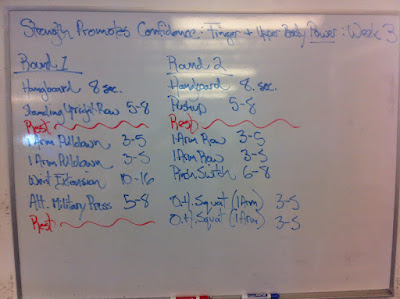 Strength Promotes Confidence: Finger + Upper Body Power: Week 3
Round 1
Hangboard 8 sec.
Standing Upright Row 5-8
Rest
1 Arm Pulldown 3-5
1 Arm Pulldown 3-5
Wrist Extension 10-16
Alt. Military Press 5-8
Rest
Round 2
Handboard 8 sec.
Pushup 5-8
Rest
1 Arm Row 3-5
1 Arm Row 3-5
Switch 6-8
O.H. Squat (1 Arm) 3-5
O.H. Squat (1 Arm) 3-5